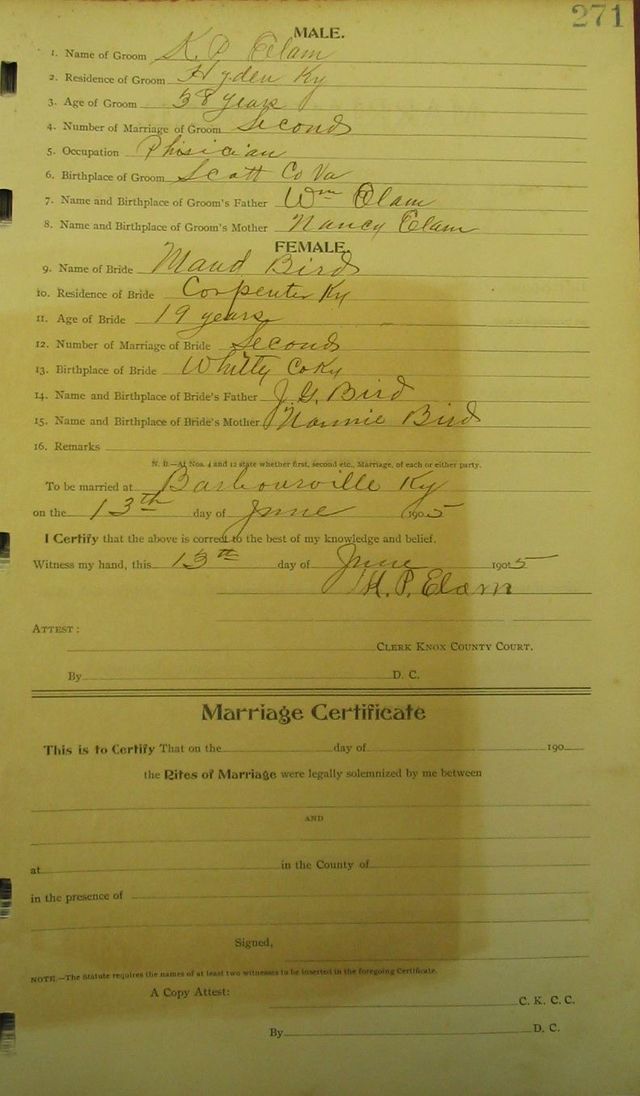 271
MALE.
1. Name of Groom K. P. Elam
2. Residence of Groom Hyden Ky
3. Age of Groom 38 years
4. Number of Marriage of Groom Second
5. Occupation Phisician
6. Birthplace of Groom Scott Co Va
7. Name and Birthplace of Groom's Father Wm Elam
8. Name and Birthplace of Groom's Mother Nancy Elam
FEMALE.
9. Name of Bride Maud Bird
10. Residence of Bride Corpenter Ky
11. Age of Bride 19 years
12. Number of Marriage of Bride Second
13. Birthplace of Bride Whitty Co Ky
14. Name and Birthplace of Bride's Father J. G. Bird
15. Name and Birthplace of Bride's Mother Nannie Bird
16. Remarks
N. B.—At Nos. 4 and 12 state whether first, second etc., Marriage, of each or either party.
To be married at Barbourville Ky
on the 13th day of June 1905
I Certify that the above is correct to the best of my knowledge and belief.
Witness my hand, this 13th day of June 1905
P. Elam
ATTEST:
CLERK KNOX COUNTY COURT.
By D. C.
Marriage Certificate
This is to Certify That on the day of 190
the Rites of Marriage were legally solemnized by me between
AND
at in the County of
in the presence of
Signed,
NOTE.—The Statute requires the names of at least two witnesses to be inserted in the foregoing Certificate.
A Copy Attest:
C. K. C. C.
By D. C.